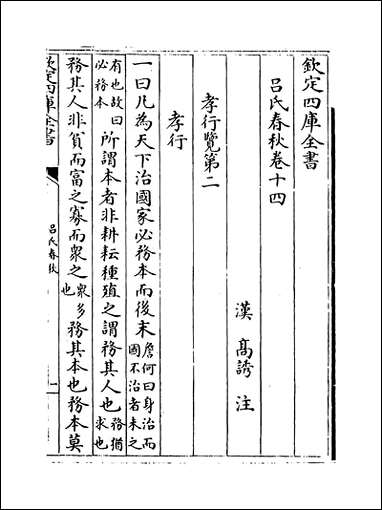 欽定四庫全書
呂氏春秋卷十四
漢 高誘 注
孝行覽第二
孝行
一曰凡為天下治國家必務本而後末詹何曰身治而國不治者未之
有也故曰必務本所謂本者非耕耘種殖之謂務其人也務猶求也
務其人非貧而富之寡而衆之衆多也務其本也務本莫
欽定四庫全書
呂氏春秋
一